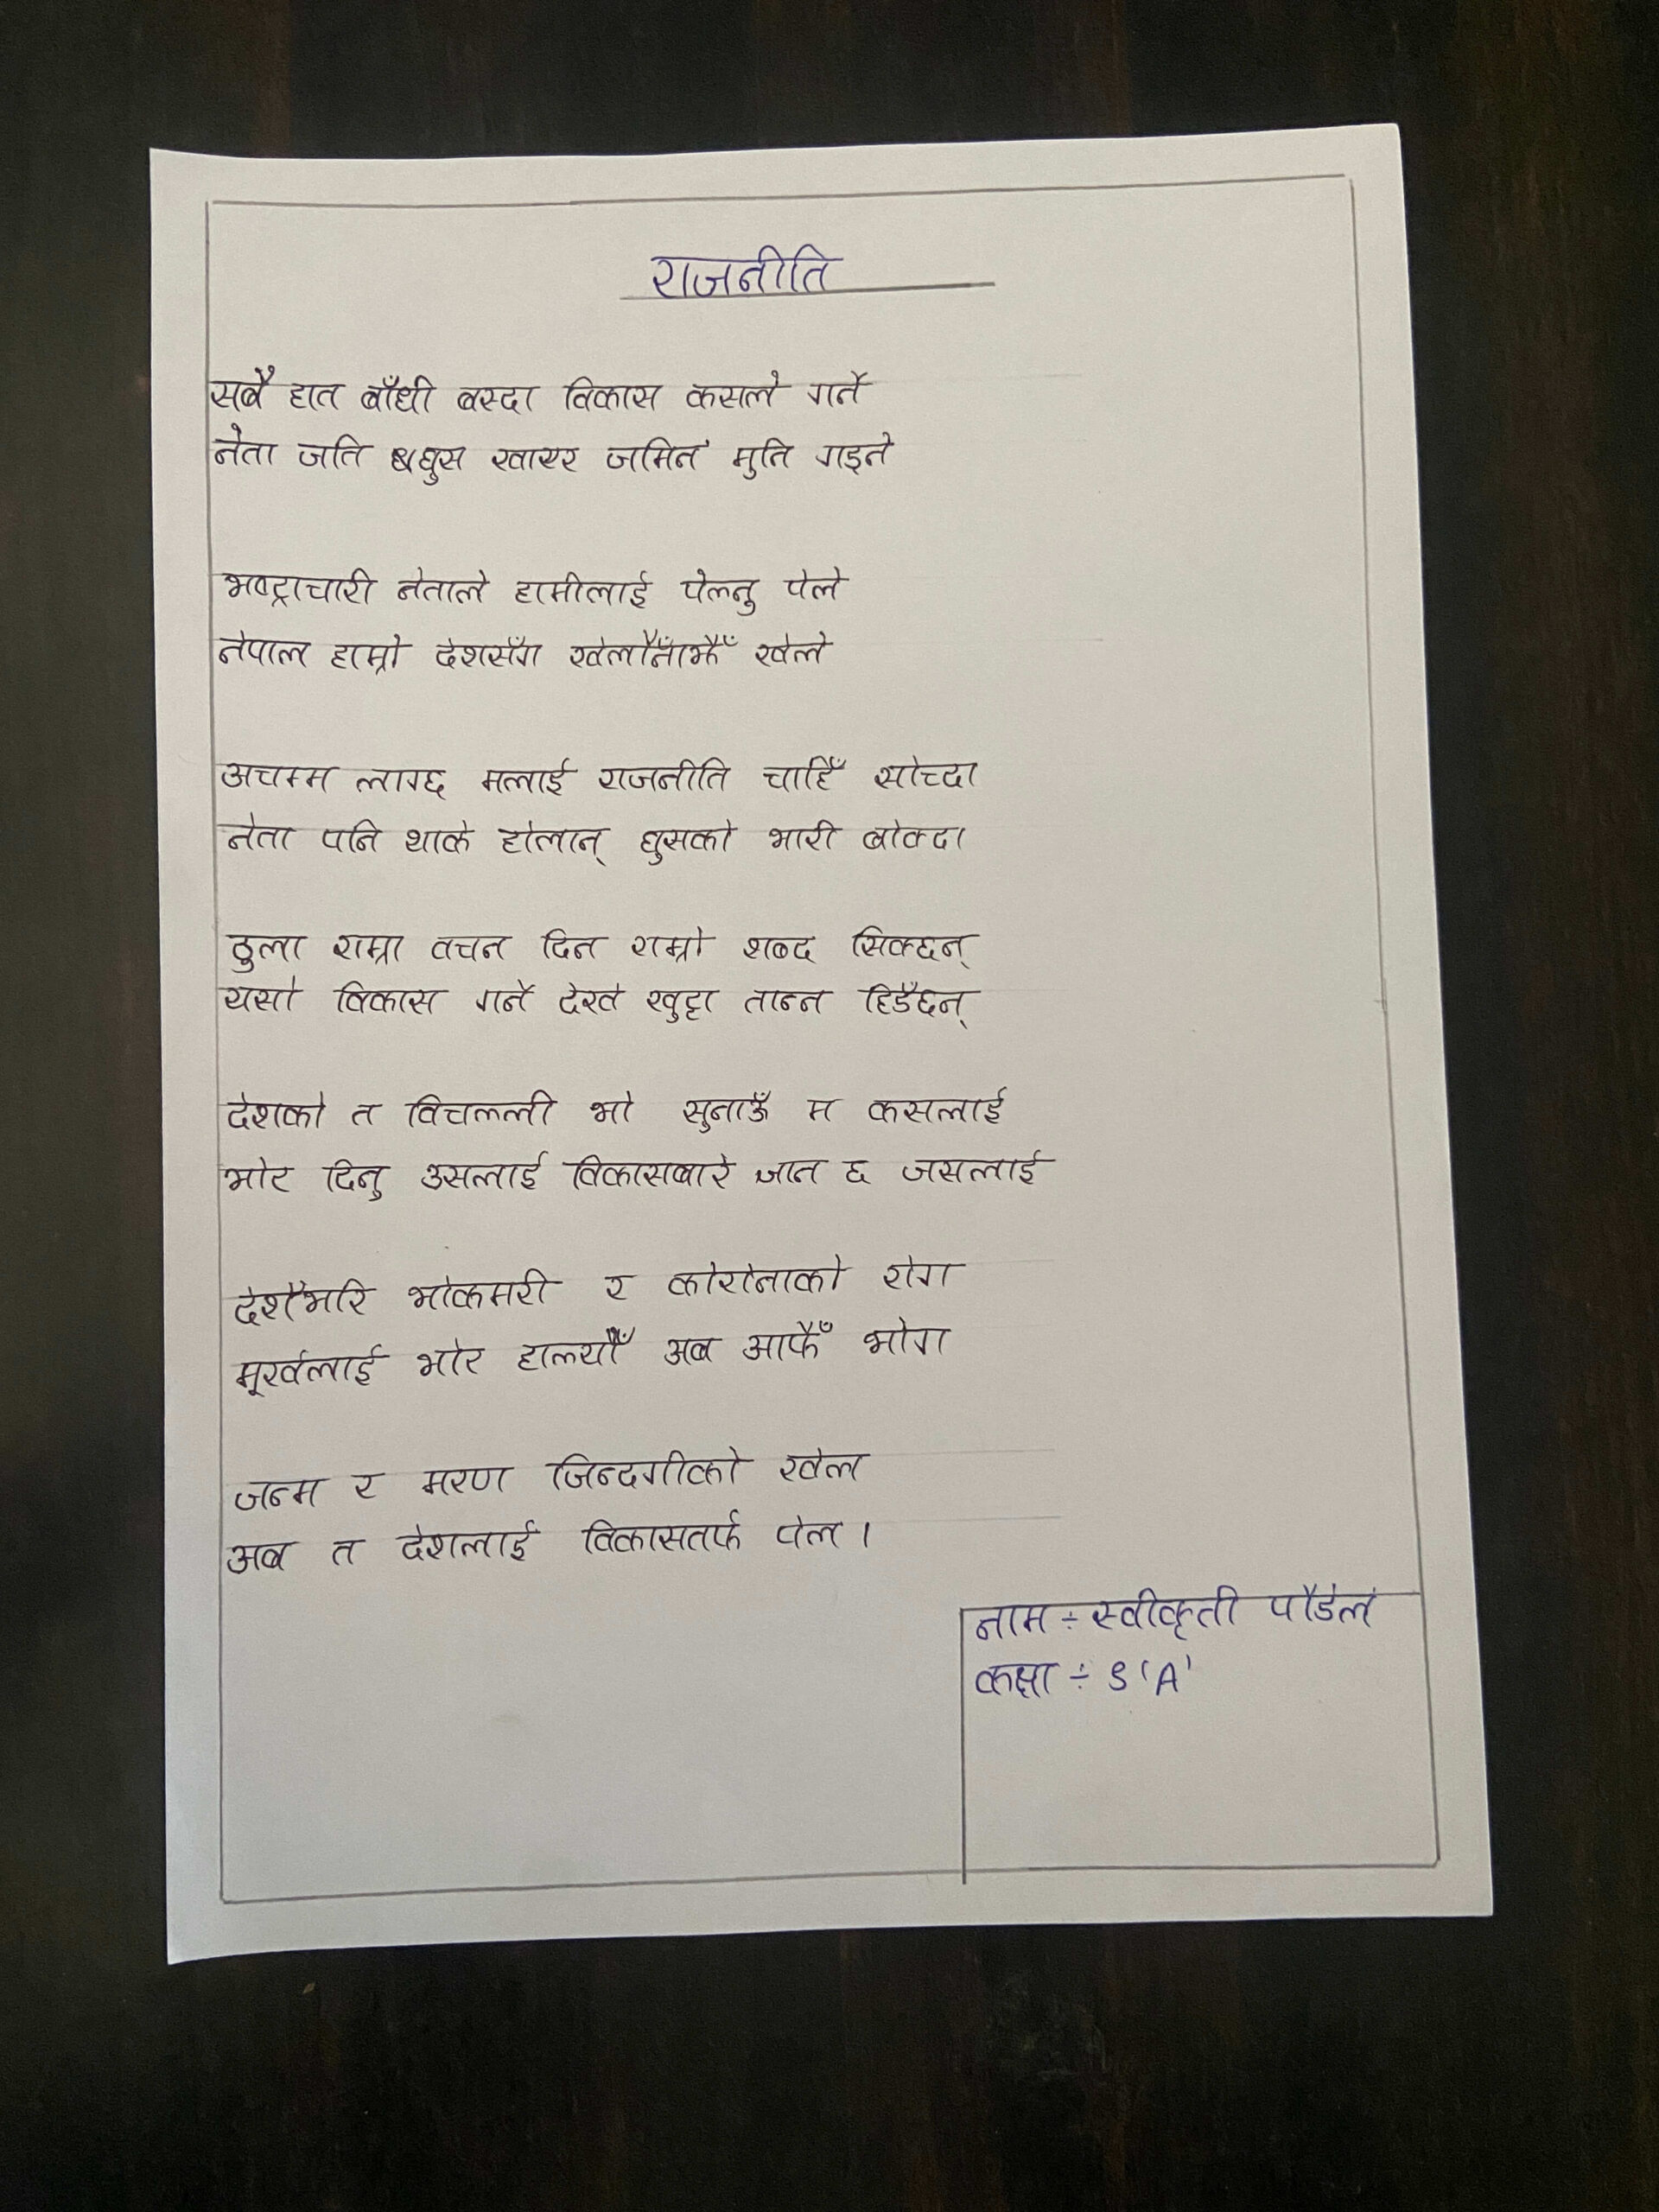 राजनीति
सबै हात बाँधी बस्दा विकास कसले गर्ने
नेता जति घुस खाएर जमिन मुनि गइने
भष्ट्राचारी नेताले हामीलाई पेल्नु पेले
नेपाल हाम्रो देशसँग खेलौनाँझैँ खेले
अचम्म लाग्छ मलाई राजनीति चाहिँ सोच्दा
नेता पनि थाके होलान् घुसको भारी बोक्दा
ठुला राम्रा वचन दिन राम्रो शब्द सिक्छन्
यसो विकास गर्ने देखे खुट्टा तान्न हिडँछन्
देशको त विचल्ली भो सुनाऊँ म कसलाई
भोट दिनु उसलाई विकासबारे ज्ञान छ जसलाई
देशैभरि भोकमरी र कोरोनाको रोग
मूर्खलाई भोट हाल्यौँ अब आफैँ भोग
जन्म र मरण जिन्दगीको खेल
अब त देशलाई विकासतर्फ पेल ।
नाम ÷ स्वीकृती पौडेल
कक्षा ÷ ९ 'A'